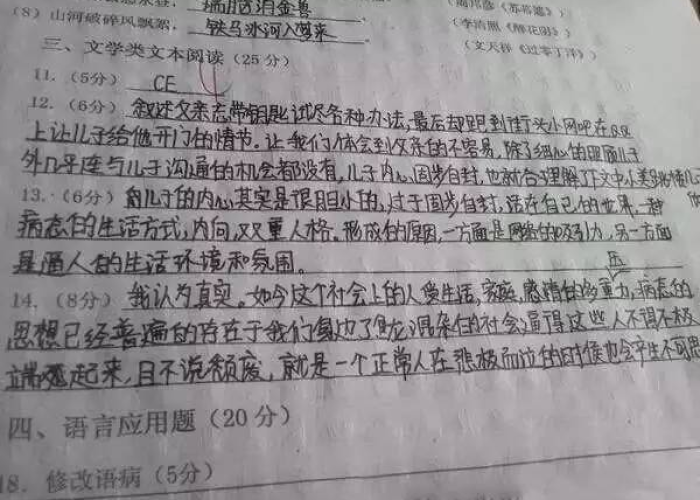 瑞脑消金兽
(8)山河破碎风飘絮, 铁马冰河入梦来 (文天祥《过零丁洋》)
(李清照《醉花阴》)
三、文学类文本阅读(25分)
11.(5分) CE
12.(6分) 叙述父亲忘带钥匙试尽各种办法,最后却跑到街头小网吧在QQ
上让儿子给他开门的情节。让我们体会到父母的不容易,除了细心的照顾儿子
外几乎连与儿子沟通的机会都没有,儿子内心固步自封,也就合理解了作文中小美
13.(6分) 的儿子的内心其实是很胆小的,过于固步自封,活在自己的世界,一种
病态的生活方式,内向,双重人格。形成的原因,一方面是网络的吸引力,另一方面
是逼人的生活环境和氛围。
14.(8分) 我认为真实。如今这个社会上的人受生活,家庭,感情的多重压力,病态的
思想已经普遍的存在于我们身边了鱼龙混杂的社会逼得这些人不得不极
端起来,且不说颓废,就是一个正常人在悲极而泣的时候也会产生不可思
四、语言应用题(20分)
18. 修改语病(5分)